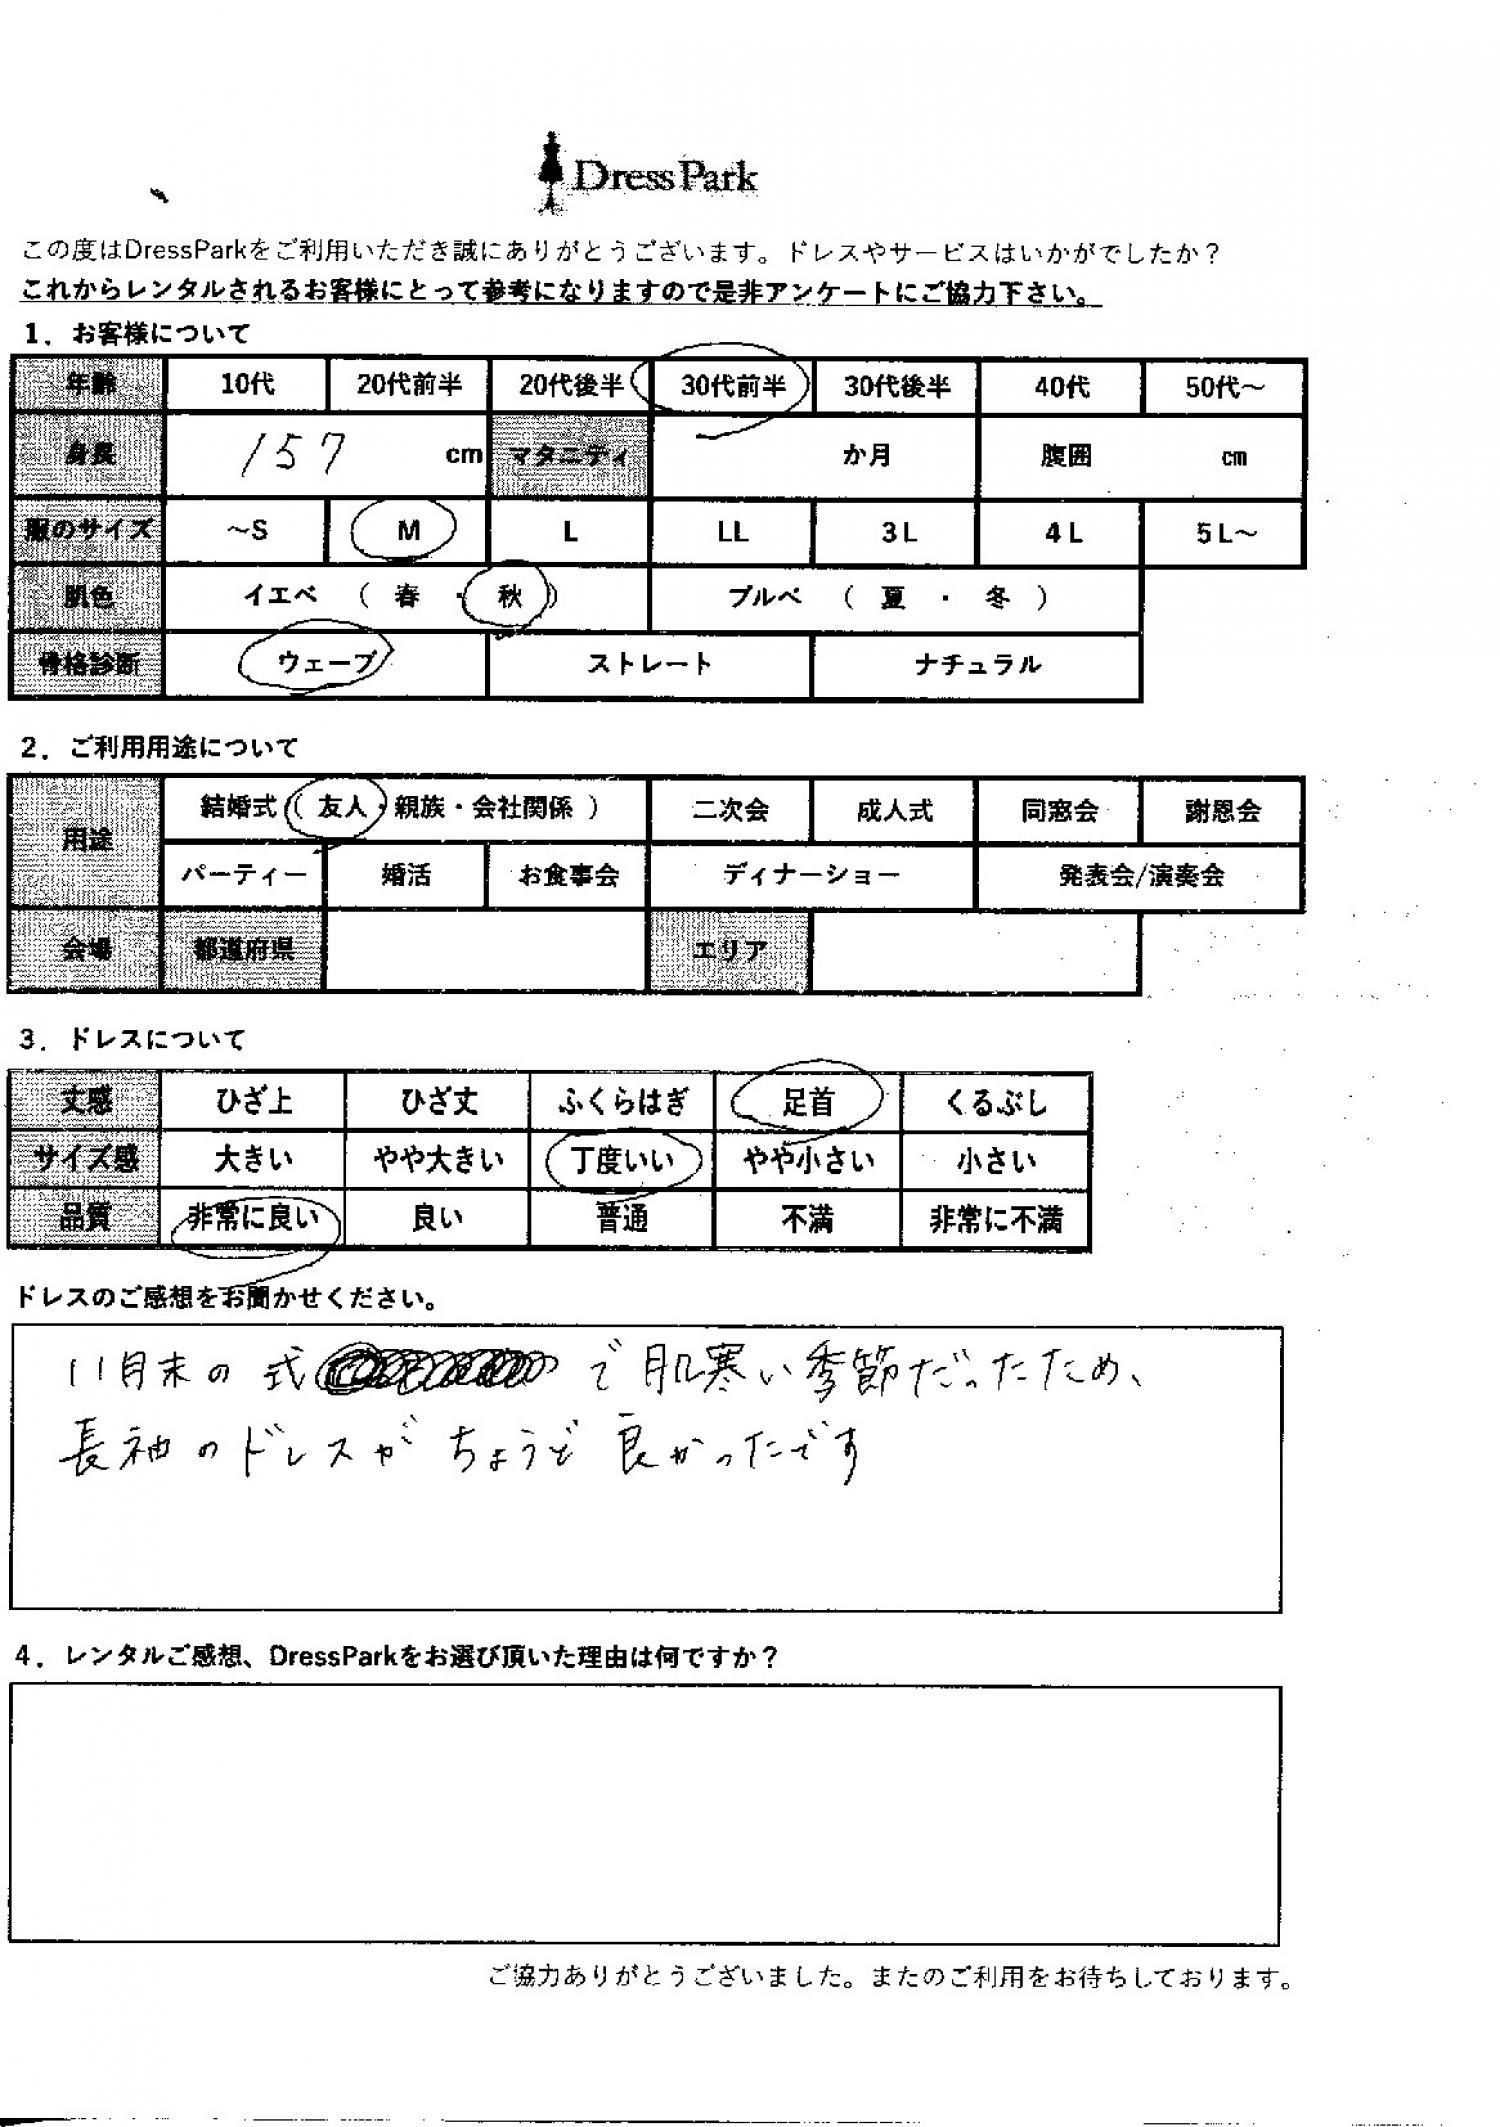 DressPark
この度はDressParkをご利用いただき誠にありがとうございます。ドレスやサービスはいかがでしたか？
これからレンタルされるお客様にとって参考になりますので是非アンケートにご協力下さい。
1．お客様について
年齢 10代 20代前半 20代後半 30代前半 30代後半 40代 50代～
身長 157 cm マタニティ か月 腹囲 cm
服のサイズ ～S M L LL 3L 4L 5L～
肌色 イエベ （ 春 ・ 秋 ） ブルベ （ 夏 ・ 冬 ）
骨格診断 ウェーブ ストレート ナチュラル
2．ご利用用途について
用途 結婚式（ 友人・親族・会社関係 ） 二次会 成人式 同窓会 謝恩会
パーティー 婚活 お食事会 ディナーショー 発表会/演奏会
会場 都道府県 エリア
3．ドレスについて
丈感 ひざ上 ひざ丈 ふくらはぎ 足首 くるぶし
サイズ感 大きい やや大きい 丁度いい やや小さい 小さい
品質 非常に良い 良い 普通 不満 非常に不満
ドレスのご感想をお聞かせください。
11月末の式で肌寒い季節だったため、
長袖のドレスがちょうど良かったです
4．レンタルご感想、DressParkをお選び頂いた理由は何ですか？
ご協力ありがとうございました。またのご利用をお待ちしております。